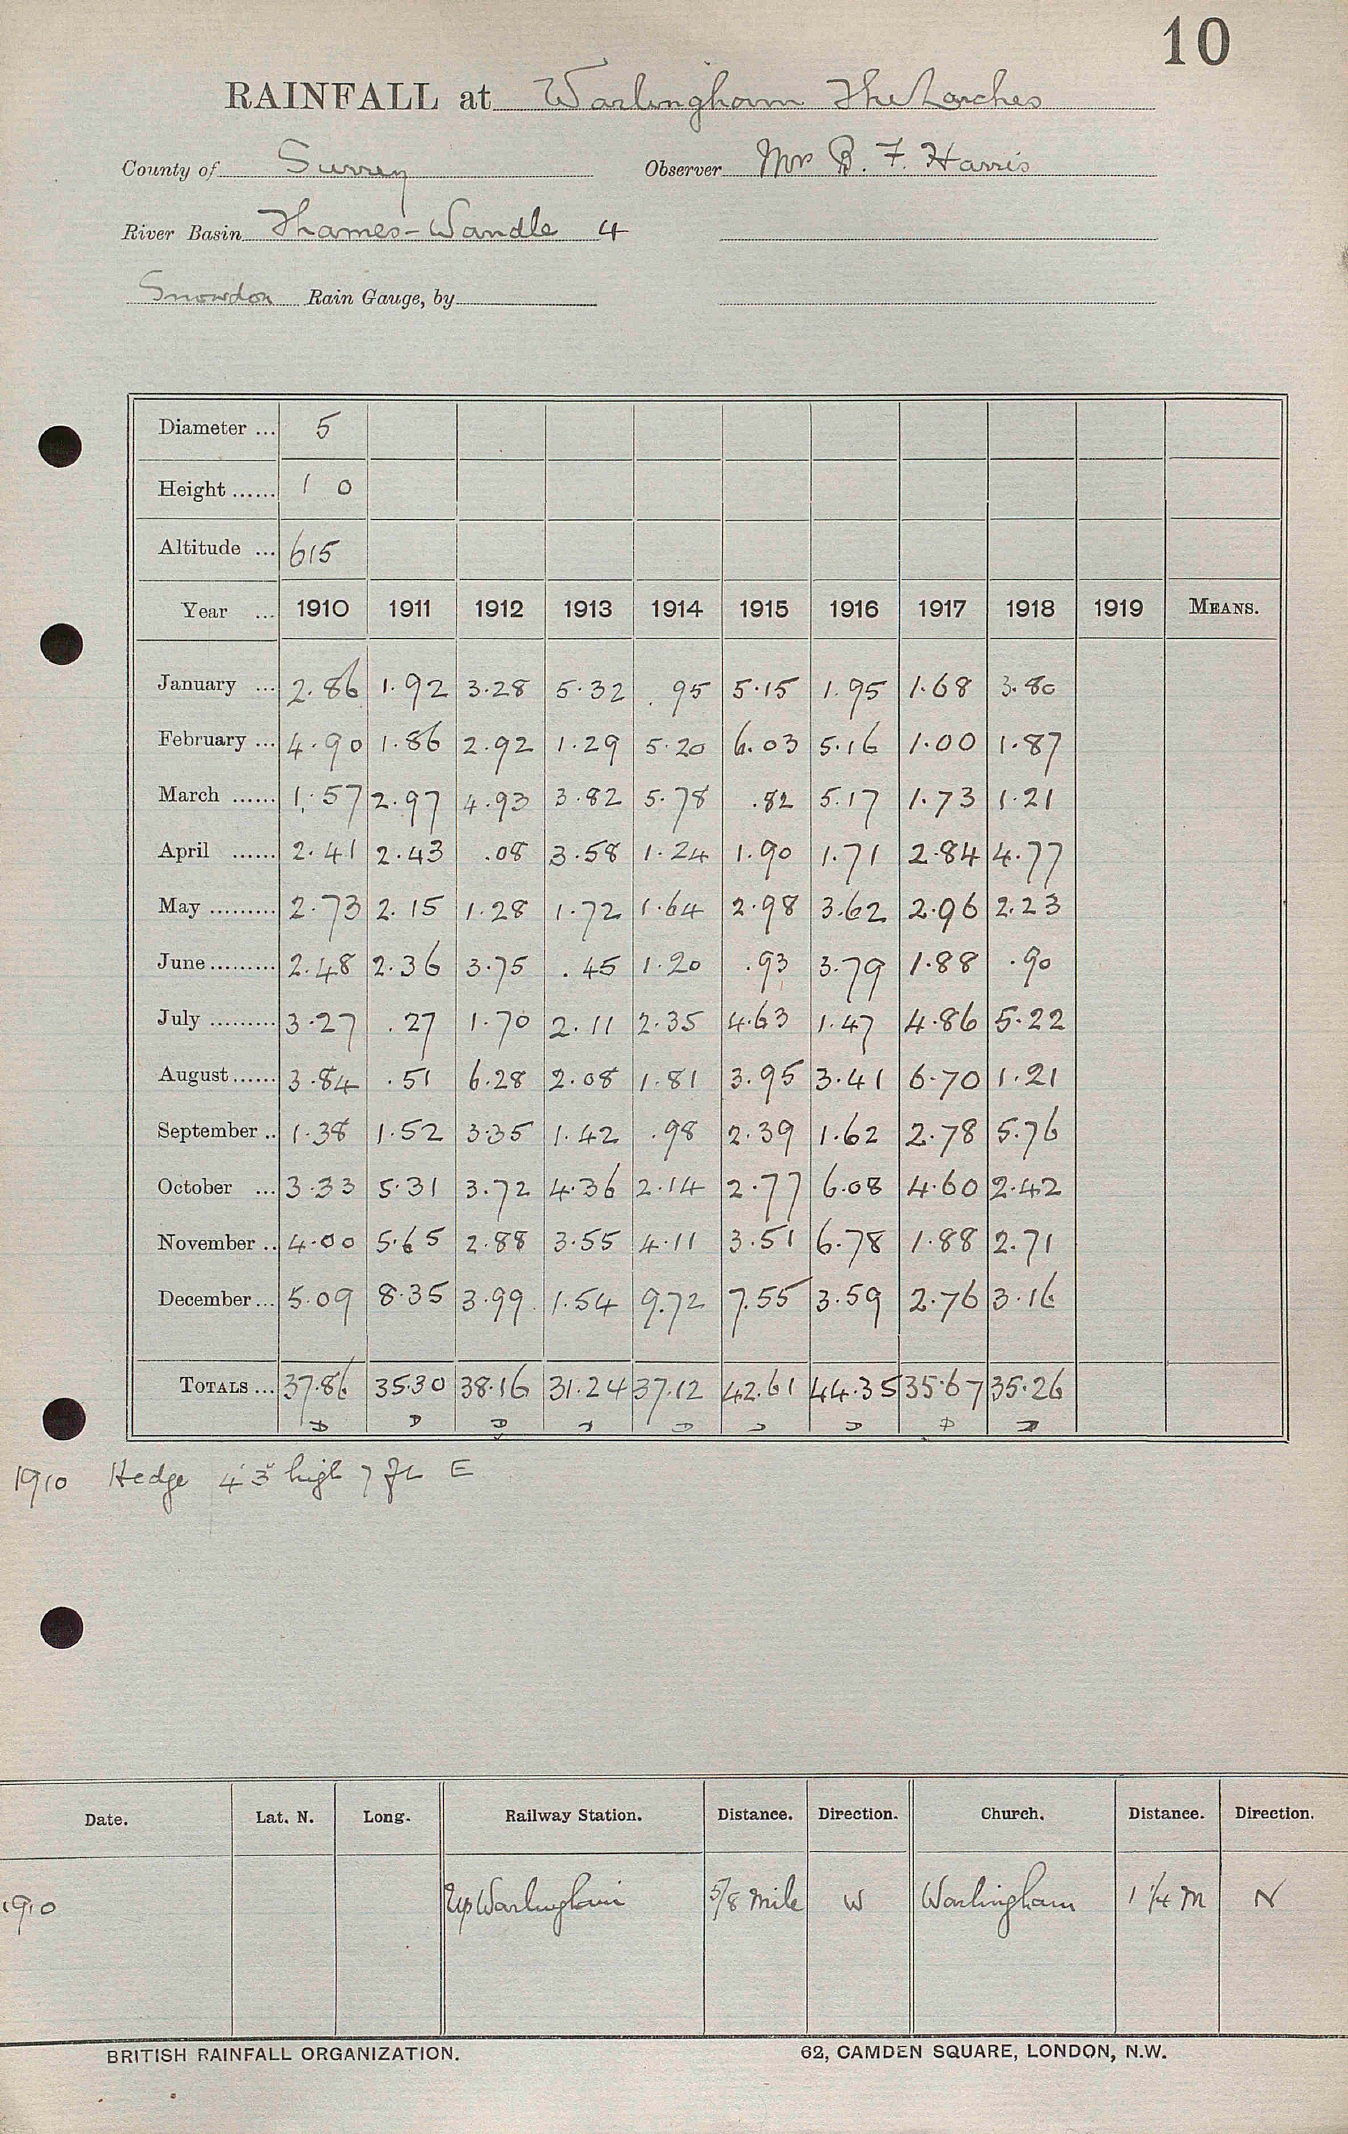 10
RAINFALL at Warlingham The Larches
County of Surrey Observer Mr B. F. Harris
River Basin Thames-Wandle 4
Snowdon Rain Gauge, by
Diameter ... 5
Height ...... 1 0
Altitude ... 615
Year ... 1910 1911 1912 1913 1914 1915 1916 1917 1918 1919 MEANS.
January ... 2.86 1.92 3.28 5.32 .95 5.15 1.95 1.68 3.80
February ... 4.90 1.86 2.92 1.29 5.20 6.03 5.16 1.00 1.87
March ...... 1.57 2.97 4.93 3.82 5.78 .82 5.17 1.73 1.21
April ...... 2.41 2.43 .08 3.58 1.24 1.90 1.71 2.84 4.77
May ......... 2.73 2.15 1.28 1.72 1.64 2.98 3.62 2.96 2.23
June ......... 2.48 2.36 3.75 .45 1.20 .93 3.79 1.88 .90
July ......... 3.27 .27 1.70 2.11 2.35 4.63 1.47 4.86 5.22
August ...... 3.84 .51 6.28 2.08 1.81 3.95 3.41 6.70 1.21
September .. 1.38 1.52 3.35 1.42 .98 2.39 1.62 2.78 5.76
October ... 3.33 5.31 3.72 4.36 2.14 2.77 6.08 4.60 2.42
November .. 4.00 5.65 2.88 3.55 4.11 3.51 6.78 1.88 2.71
December ... 5.09 8.35 3.99 1.54 9.72 7.55 3.59 2.76 3.16
TOTALS ... 37.86 35.30 38.16 31.24 37.12 42.61 44.35 35.67 35.26
1910 Hedge 4' 3" high 7 ft E
Date. Lat. N. Long. Railway Station. Distance. Direction. Church. Distance. Direction.
1910 Up Warlingham 5/8 mile W Warlingham 1 1/4 m N
BRITISH RAINFALL ORGANIZATION. 62, CAMDEN SQUARE, LONDON, N.W.